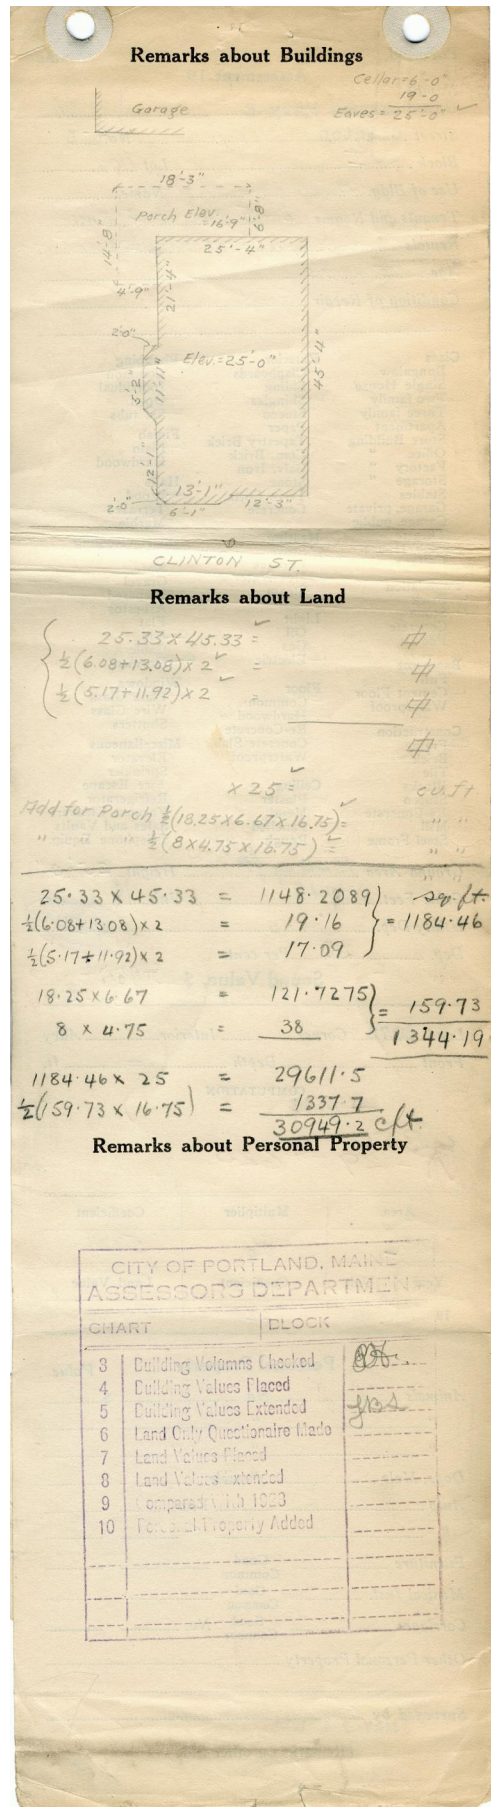 Remarks about Buildings
Cellar = 6'-0"
19-0
Eaves = 25'-0" ✓
Garage
18'-3"
Porch Elev.
=16'-9"
6'-8"
14'-8"
25'-4"
4'-9"
21'-4"
2'-0"
Elev. = 25'-0"
45'-4"
5'-2"
11'-11"
12'-1"
13'-1"
12'-3"
2'-0"
6'-1"
CLINTON ST.
Remarks about Land
25.33 X 45.33 =
½(6.08+13.08) x 2 =
½(5.17+11.92) x 2 =
x 25 = cu.ft.
Add for Porch ½(18.25x6.67x16.75)= " "
" ½(8x4.75x16.75) = " "
25.33 X 45.33 = 1148.2089 sq.ft.
½(6.08+13.08) x 2 = 19.16 = 1184.46
½(5.17+11.92) x 2 = 17.09
18.25 x 6.67 = 121.7275 = 159.73
8 x 4.75 = 38 1344.19
1184.46 x 25 = 29611.5
½(159.73 x 16.75) = 1337.7
30949.2 cft.
Remarks about Personal Property
CITY OF PORTLAND, MAINE
ASSESSORS DEPARTMENT
CHART BLOCK
3 Building Volumns Checked
4 Building Values Placed
5 Building Values Extended
6 Land Only Questionaire Made
7 Land Values Placed
8 Land Values Extended
9 Compared with 1923
10 Personal Property Added